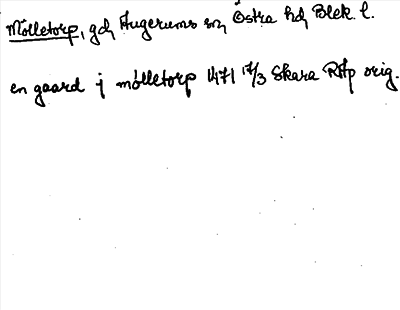 Mölletorp, gd, Augerums sn, Östra hd, Blek. l.
en gaard j mölletorp 1471 17/3 Skara RAp orig.